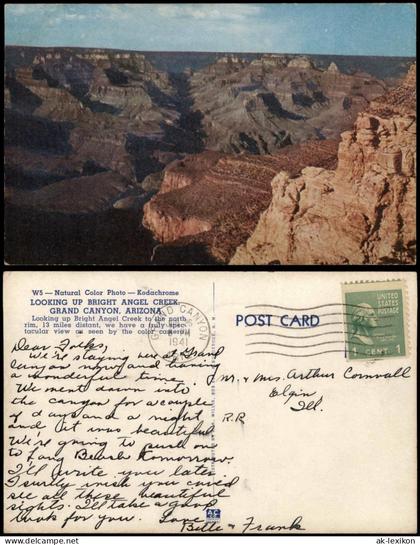 W5 — Natural Color Photo — Kodachrome
LOOKING UP BRIGHT ANGEL CREEK,
GRAND CANYON, ARIZONA
Looking up Bright Angel Creek to the north
rim, 13 miles distant, we have a truly spec-
tacular view as seen by the color camera.
GRAND CANYON
1941
POST CARD
UNITED STATES
POSTAGE
1 CENT 1
Dear Folks,
We're staying here at Grand
Canyon now and having
a wonderful time.
We went down into
the canyon for a couple
of days and a night
and it was beautiful
We're going to push on
to Long Beach tomorrow.
I'll write you later
I surely wish you could
see all these beautiful
sights. I'll take a good
look for you. Love
Bille & Frank
Mr. & Mrs. Arthur Cornwall
Elgin
Ill.
R.R
© ak-lexikon.com